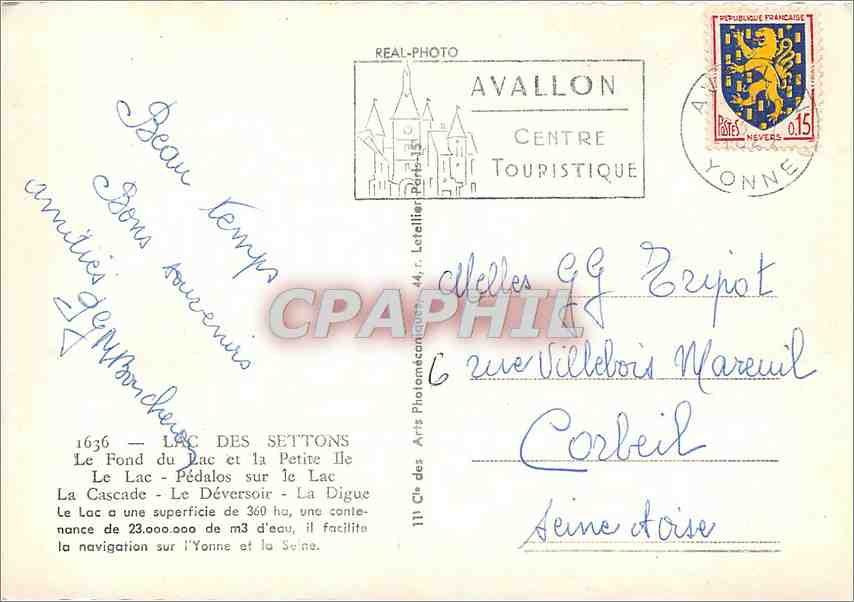 REAL-PHOTO
AVALLON
CENTRE
TOURISTIQUE
REPUBLIQUE FRANÇAISE
POSTES
0,15
NEVERS
YONNE
Beau temps
Bons souvenirs
amitiés
Melles GG Tripot
6 rue Villebois Mareuil
Corbeil
Seine et oise
CPAPHIL
111 Cie des Arts Photomécaniques, 44, r. Letellier Paris-15e
1636 — LAC DES SETTONS
Le Fond du Lac et la Petite Ile
Le Lac - Pédalos sur le Lac
La Cascade - Le Déversoir - La Digue
Le Lac a une superficie de 360 ha, une conte-
nance de 23.000.000 de m3 d'eau, il facilite
la navigation sur l'Yonne et la Seine.